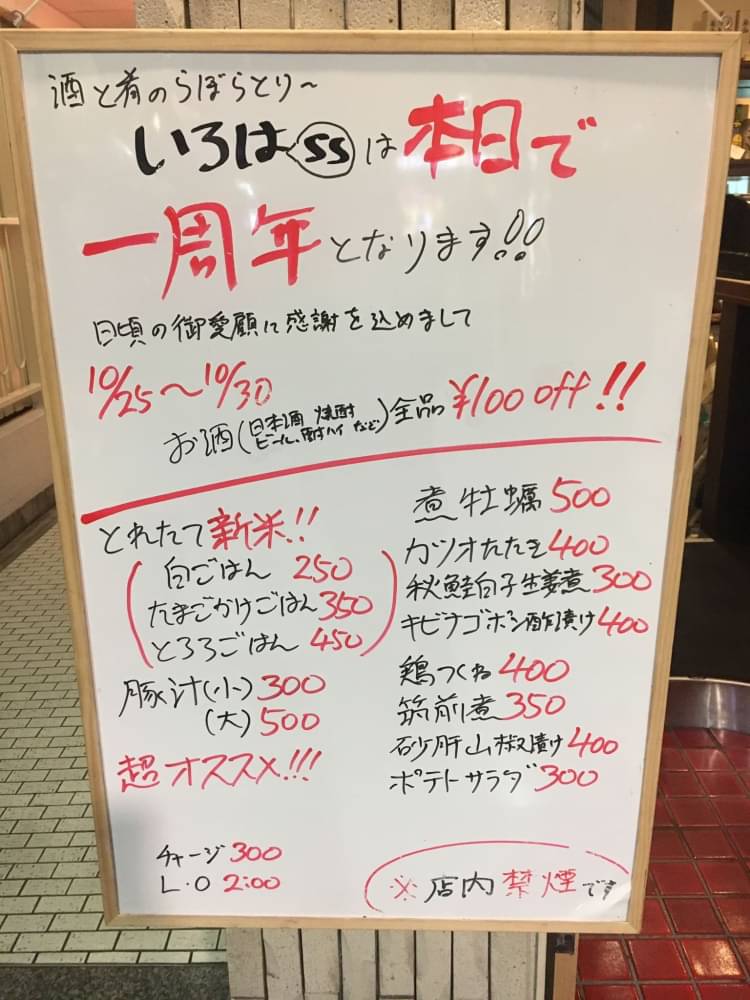 酒と肴のらぼらとり〜
いろはSSは本日で
一周年となります!!
日頃の御愛顧に感謝を込めまして
10/25〜10/30
お酒(日本酒 焼酎 ビール、酎ハイ など)全品¥100 off!!
とれたて新米!!
白ごはん 250
たまごかけごはん350
とろろごはん 450
豚汁(小)300
(大)500
超オススメ!!!
チャージ300
L.O 2:00
煮牡蠣500
カツオたたき400
秋鮭白子生姜煮300
キビナゴポン酢漬け400
鶏つくね400
筑前煮350
砂肝山椒漬け400
ポテトサラダ300
※店内禁煙です